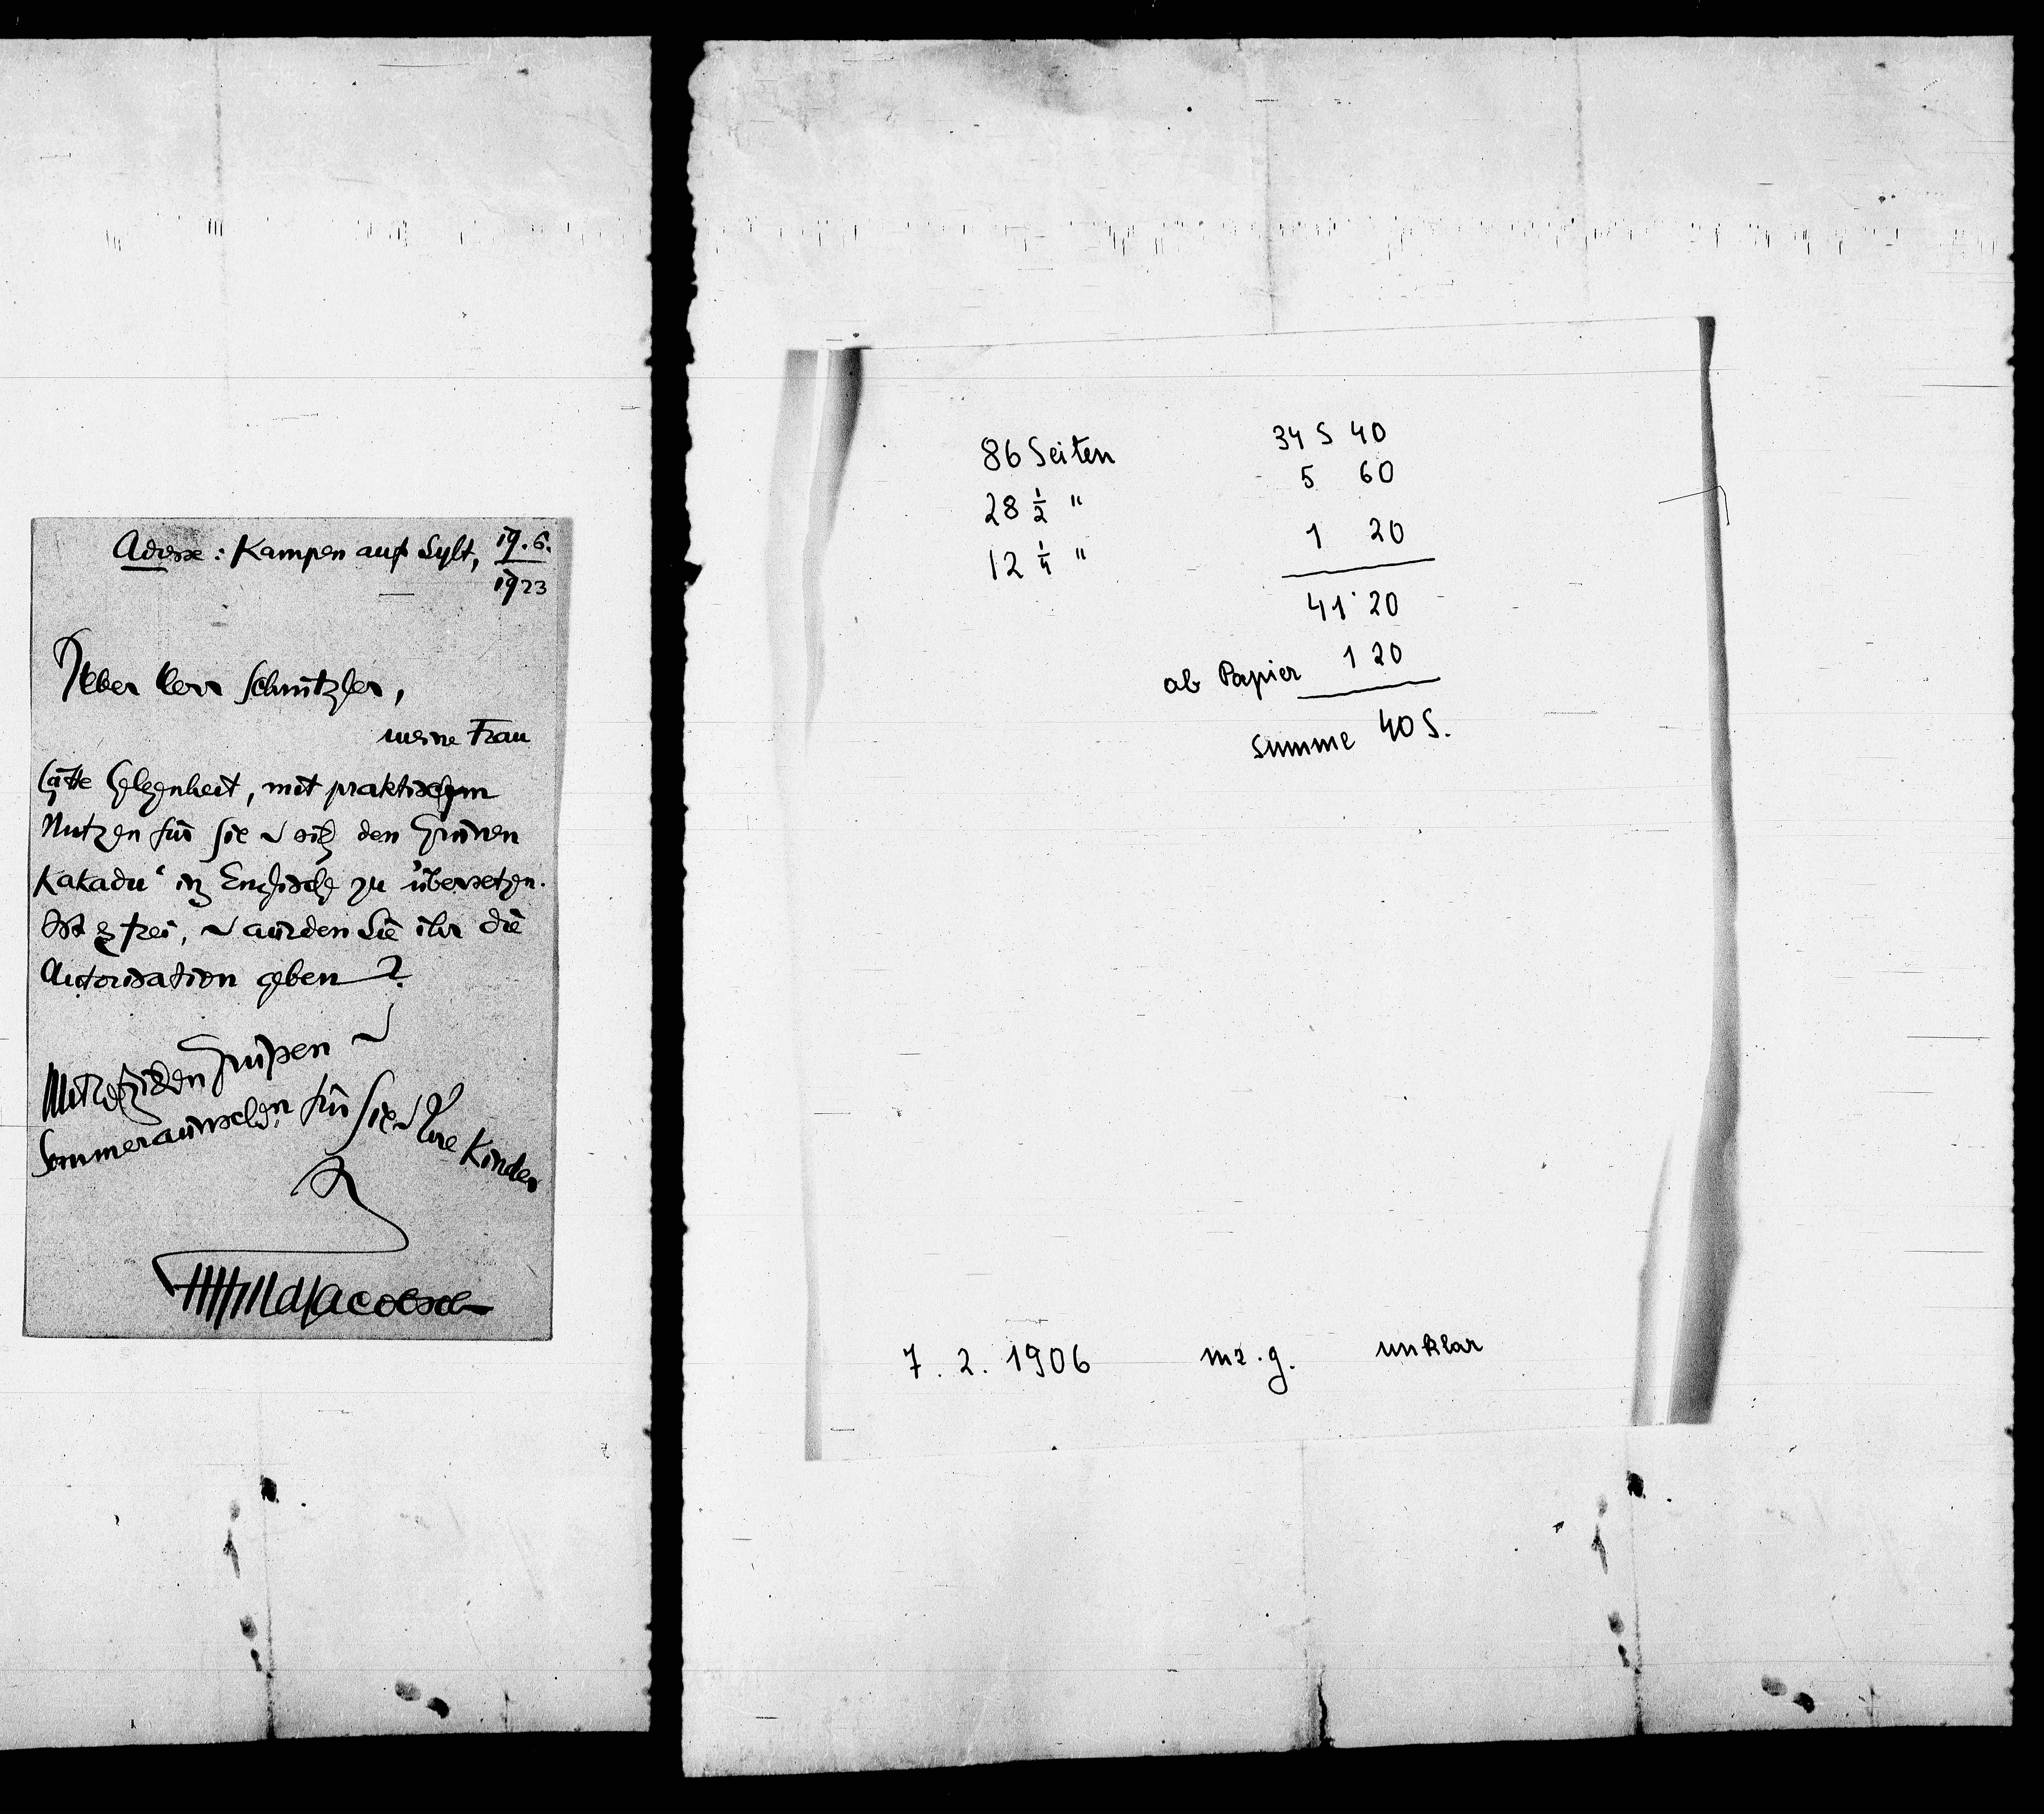 Adresse: Kampen auf Sylt, 19.6.
1923
Lieber Herr Schnitzler,
meine Frau
hätte Gelegenheit, mit praktischem
Nutzen für Sie u sich den Grünen
Kakadu“ ins Englische zu übersetzen.
Ist es frei, u würden Sie ihr die
Autorisation geben?
Mit herzlichen Grüßen u
Sommerwünschen für Sie u Ihre Kinder
Ihr
Siegfried Jacobsohn
86 Seiten 34 S 40
28 ½ " 5 60
12 ¼ " 1 20
41 20
ab Papier 1 20
Summe 40 S.
7. 2. 1906 unklar